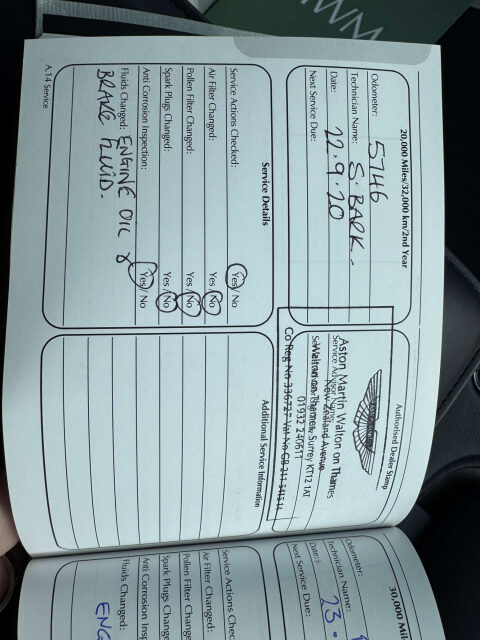 20,000 Miles/32,000 km/2nd Year
Odometer: 5746
Technician Name: S. BARK.
Date: 22.9.20
Next Service Due:
Authorised Dealer Stamp
Aston Martin Walton on Thames
Service Advisor Name:
New Zealand Avenue
Walton on Thames, Surrey KT12 1AT
01932 240611
Co Reg No 336727 Vat No GB 211
Service Details
Service Actions Checked: Yes / No
Air Filter Changed: Yes / No
Pollen Filter Changed: Yes / No
Spark Plugs Changed: Yes / No
Anti Corrosion Inspection: Yes / No
Fluids Changed: ENGINE OIL &
BRAKE FLUID.
Additional Service Information
A.14 Service
30,000 Mil
Odometer:
Technician Name:
Date: 23
Next Service Due:
Service Actions Chec
Air Filter Changed:
Pollen Filter Change
Spark Plugs Change
Anti Corrosion Insp
Fluids Changed:
ENG
WM